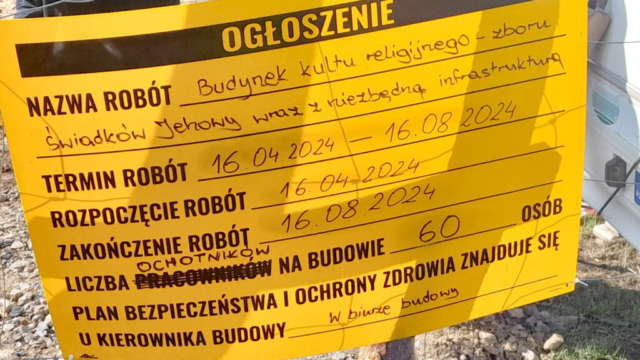 OGŁOSZENIE
NAZWA ROBÓT Budynek kultu religijnego - zboru
Świadków Jehowy wraz z niezbędną infrastrukturą
TERMIN ROBÓT 16.04.2024 - 16.08.2024
ROZPOCZĘCIE ROBÓT 16.04.2024
ZAKOŃCZENIE ROBÓT 16.08.2024
OCHOTNIKÓW
LICZBA PRACOWNIKÓW NA BUDOWIE 60 OSÓB
PLAN BEZPIECZEŃSTWA I OCHRONY ZDROWIA ZNAJDUJE SIĘ
U KIEROWNIKA BUDOWY w biurze budowy